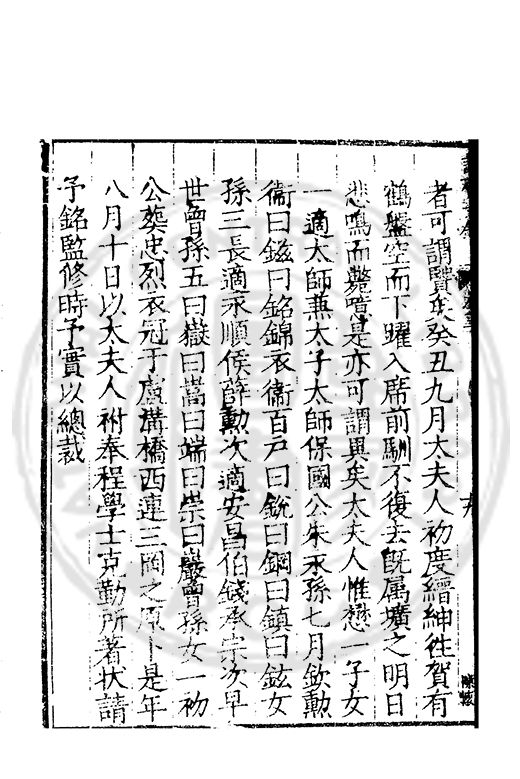 者可謂賢矣癸丑九月太夫人初度縉紳徃賀有
鶴盤空而下躍入席前馴不復去旣属壙之明日
悲鳴而斃噫是亦可謂異矣太夫人惟懋一子女
一適太師兼太子太師保國公朱永孫七月欽勳
衛曰鎡曰銘錦衣衛百戸曰銃曰鋼曰鎮曰鉉女
孫三長適永順侯薛勳次適安昌伯錢承宗次早
世曾孫五曰嶽曰嵩曰端曰崇曰巖曾孫女一初
公葬忠烈衣冠于盧溝橋西連三岡之原卜是年
八月十日以太夫人祔奉程學士克勤所著状請
予銘監修時予實以總裁